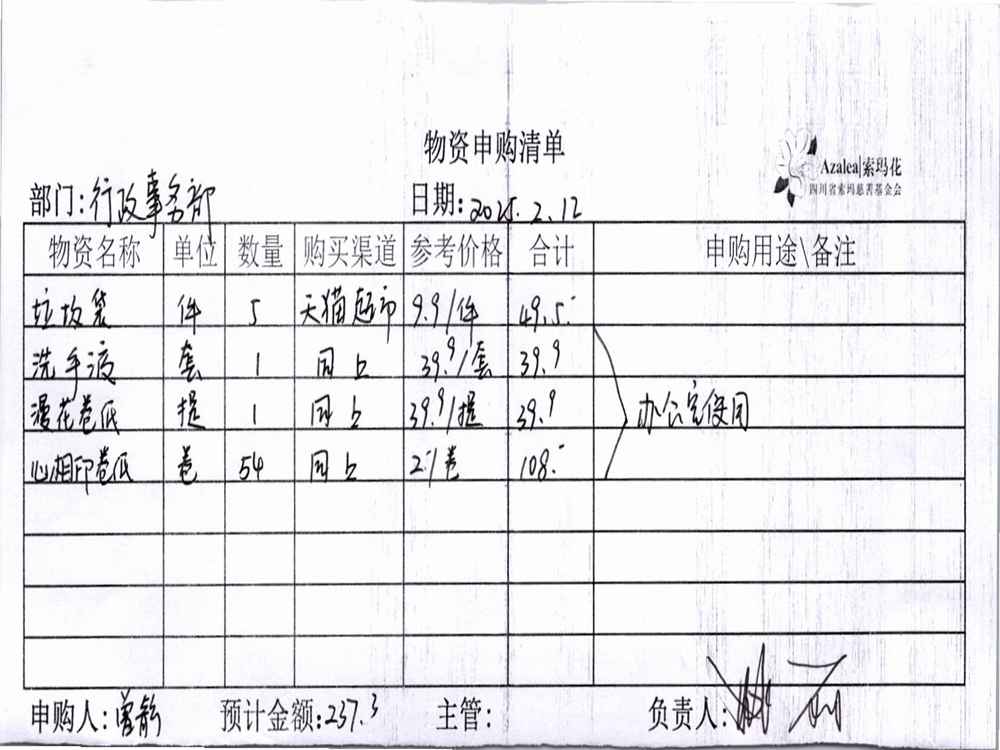 物资申购清单
Azalea|索玛花
四川省索玛慈善基金会
部门:行政事务部 日期:2025.2.12
物资名称 单位 数量 购买渠道 参考价格 合计 申购用途\备注
垃圾袋 件 5 天猫超市 9.9/件 49.5.-
洗手液 套 1 同上 39.9/套 39.9
漫花卷纸 提 1 同上 39.9/提 39.9
办公室使用
心相印卷纸 卷 54 同上 2.-/卷 108.-
申购人:曾静 预计金额:237.3 主管: 负责人: